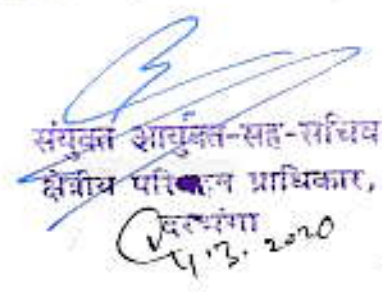 संयुक्त आयुक्त-सह-सचिव
क्षेत्रीय परिवहन प्राधिकार,
दरभंगा
4.3.2020